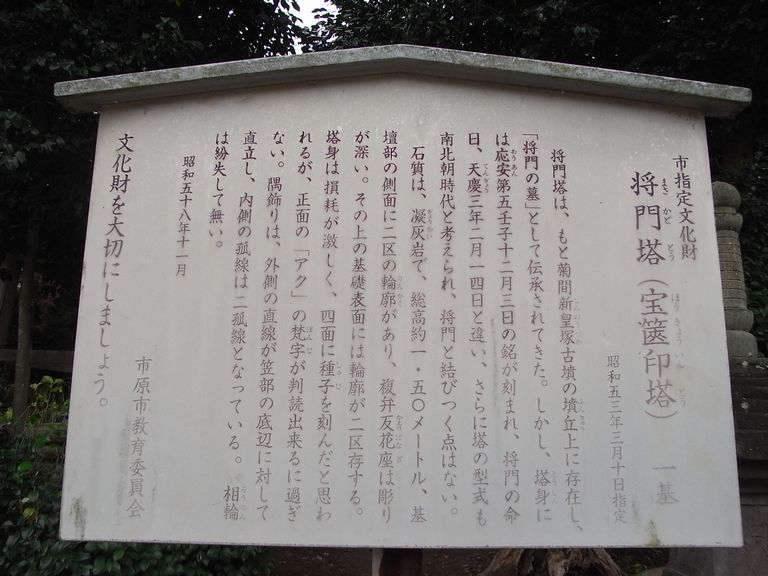 市指定文化財
将門塔（宝篋印塔）　一基
昭和五三年三月十日指定
将門塔は、もと菊間新皇塚古墳の墳丘上に存在し、
「将門の墓」として伝承されてきた。しかし、塔身に
は応安第五壬子十二月三日の銘が刻まれ、将門の命
日、天慶三年二月一四日と違い、さらに塔の型式も
南北朝時代と考えられ、将門と結びつく点はない。
石質は、凝灰岩で、総高約一・五〇メートル、基
壇部の側面に二区の輪廓があり、複弁反花座は彫り
が深い。その上の基礎表面には輪廓が二区存する。
塔身は損耗が激しく、四面に種子を刻んだと思わ
れるが、正面の「アク」の梵字が判読出来るに過ぎ
ない。隅飾りは、外側の直線が笠部の底辺に対して
直立し、内側の孤線は二孤線となっている。相輪
は紛失して無い。
昭和五十八年十一月
文化財を大切にしましょう。
市原市教育委員会